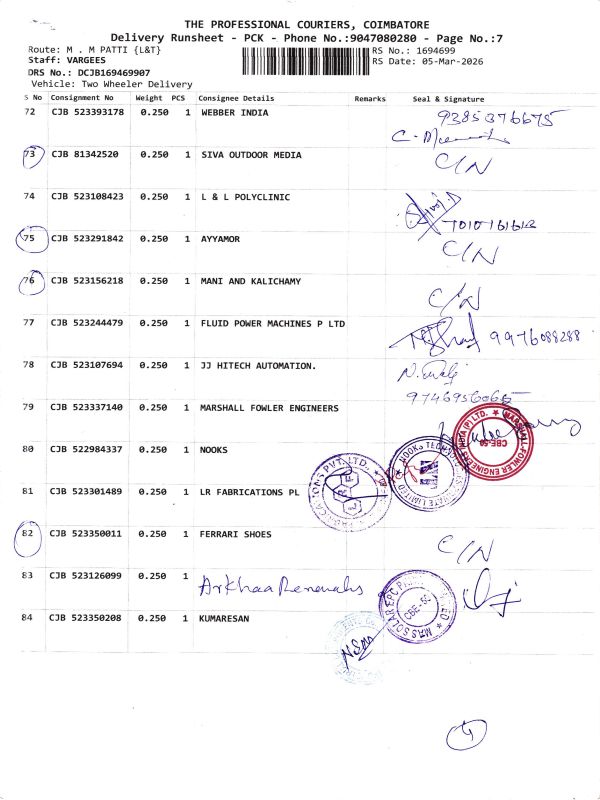 THE PROFESSIONAL COURIERS, COIMBATORE
Delivery Runsheet - PCK - Phone No.:9047080280 - Page No.:7
Route: M . M PATTI {L&T} RS No.: 1694699
Staff: VARGEES RS Date: 05-Mar-2026
DRS No.: DCJB169469907
Vehicle: Two Wheeler Delivery
S No Consignment No Weight PCS Consignee Details Remarks Seal & Signature
72 CJB 523393178 0.250 1 WEBBER INDIA 9385376675
73 CJB 81342520 0.250 1 SIVA OUTDOOR MEDIA C/N
74 CJB 523108423 0.250 1 L & L POLYCLINIC
75 CJB 523291842 0.250 1 AYYAMOR C/N
76 CJB 523156218 0.250 1 MANI AND KALICHAMY C/N
77 CJB 523244479 0.250 1 FLUID POWER MACHINES P LTD 9976088288
78 CJB 523107694 0.250 1 JJ HITECH AUTOMATION.
79 CJB 523337140 0.250 1 MARSHALL FOWLER ENGINEERS
MARSHALL-FOWLER ENGINEERS INDIA (P) LTD. CBE-50
80 CJB 522984337 0.250 1 NOOKS
81 CJB 523301489 0.250 1 LR FABRICATIONS PL
82 CJB 523350011 0.250 1 FERRARI SHOES C/N
83 CJB 523126099 0.250 1
84 CJB 523350208 0.250 1 KUMARESAN